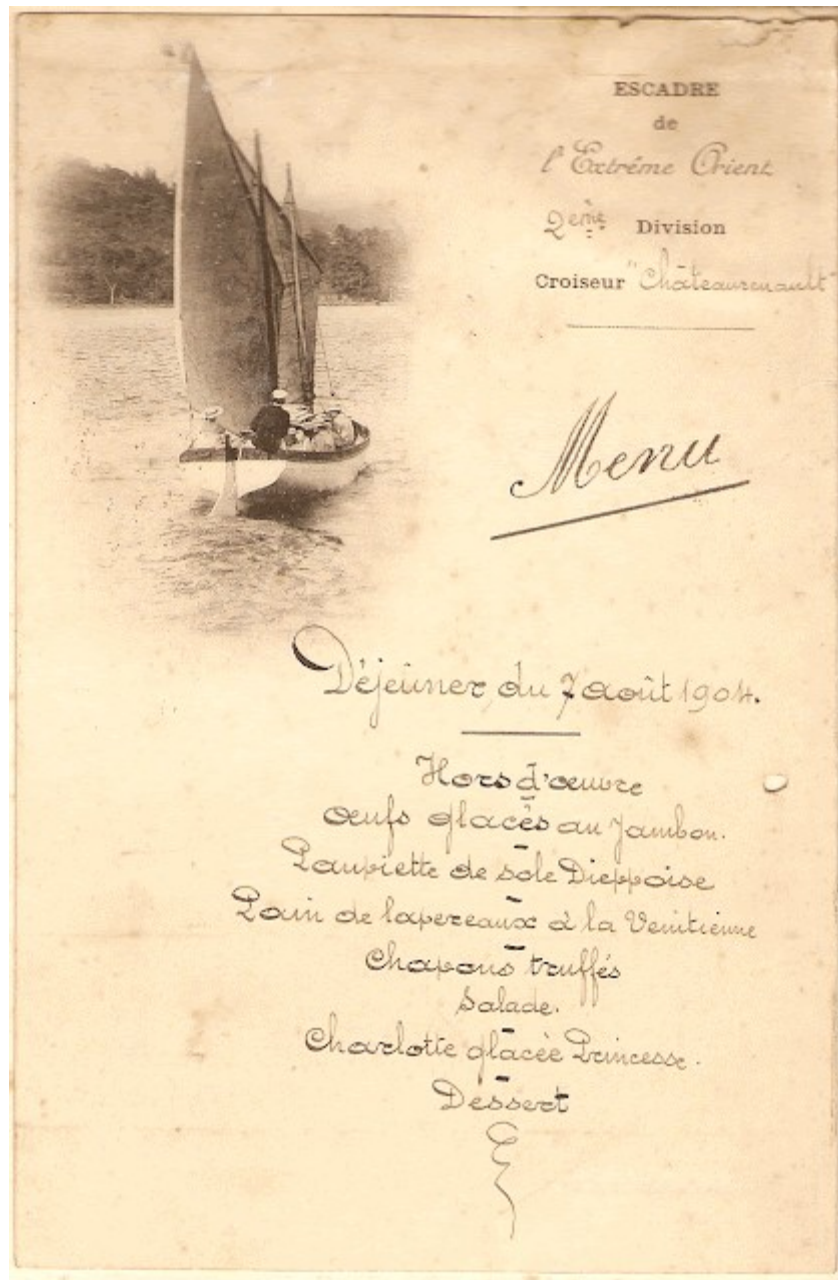 ESCADRE
de
l'Extrême Orient
2ème Division
Croiseur "Châteaurenault"
Menu
Déjeûner du 7 août 1904.
Hors d'œuvre
œufs glacés au Jambon.
Paupiette de sole Dieppoise
Pain de lapereaux à la Venitienne
Chapons truffés
Salade.
Charlotte glacée Princesse.
Dessert